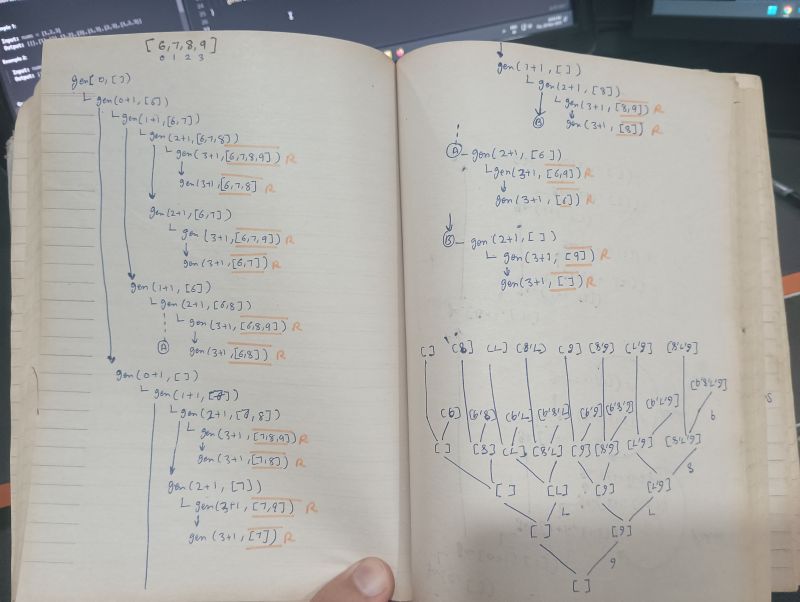 [6,7,8,9]
0 1 2 3
gen(0,[])
gen(0+1,[6])
gen(1+1,[6,7])
gen(2+1,[6,7,8])
gen(3+1,[6,7,8,9]) R
gen(3+1,[6,7,8]) R
gen(2+1,[6,7])
gen(3+1,[6,7,9]) R
gen(3+1,[6,7]) R
gen(1+1,[6])
gen(2+1,[6,8])
gen(3+1,[6,8,9]) R
A
gen(3+1,[6,8]) R
gen(0+1,[])
gen(1+1,[7])
gen(2+1,[7,8])
gen(3+1,[7,8,9]) R
gen(3+1,[7,8]) R
gen(2+1,[7])
gen(3+1,[7,9]) R
gen(3+1,[7]) R
gen(1+1,[])
gen(2+1,[8])
gen(3+1,[8,9]) R
B
gen(3+1,[8]) R
A gen(2+1,[6])
gen(3+1,[6,9]) R
gen(3+1,[6]) R
B gen(2+1,[])
gen(3+1,[9]) R
gen(3+1,[]) R
[] [8] [7] [7,8] [6] [6,8] [6,7] [6,7,8]
[9] [8,9] [7,9] [7,8,9] [6,9] [6,8,9] [6,7,9] [6,7,8,9]
9
[] [8] [7] [7,8] [6] [6,8] [6,7] [6,7,8]
8
[] [7] [6] [6,7]
7 7
[] [6]
6
[]